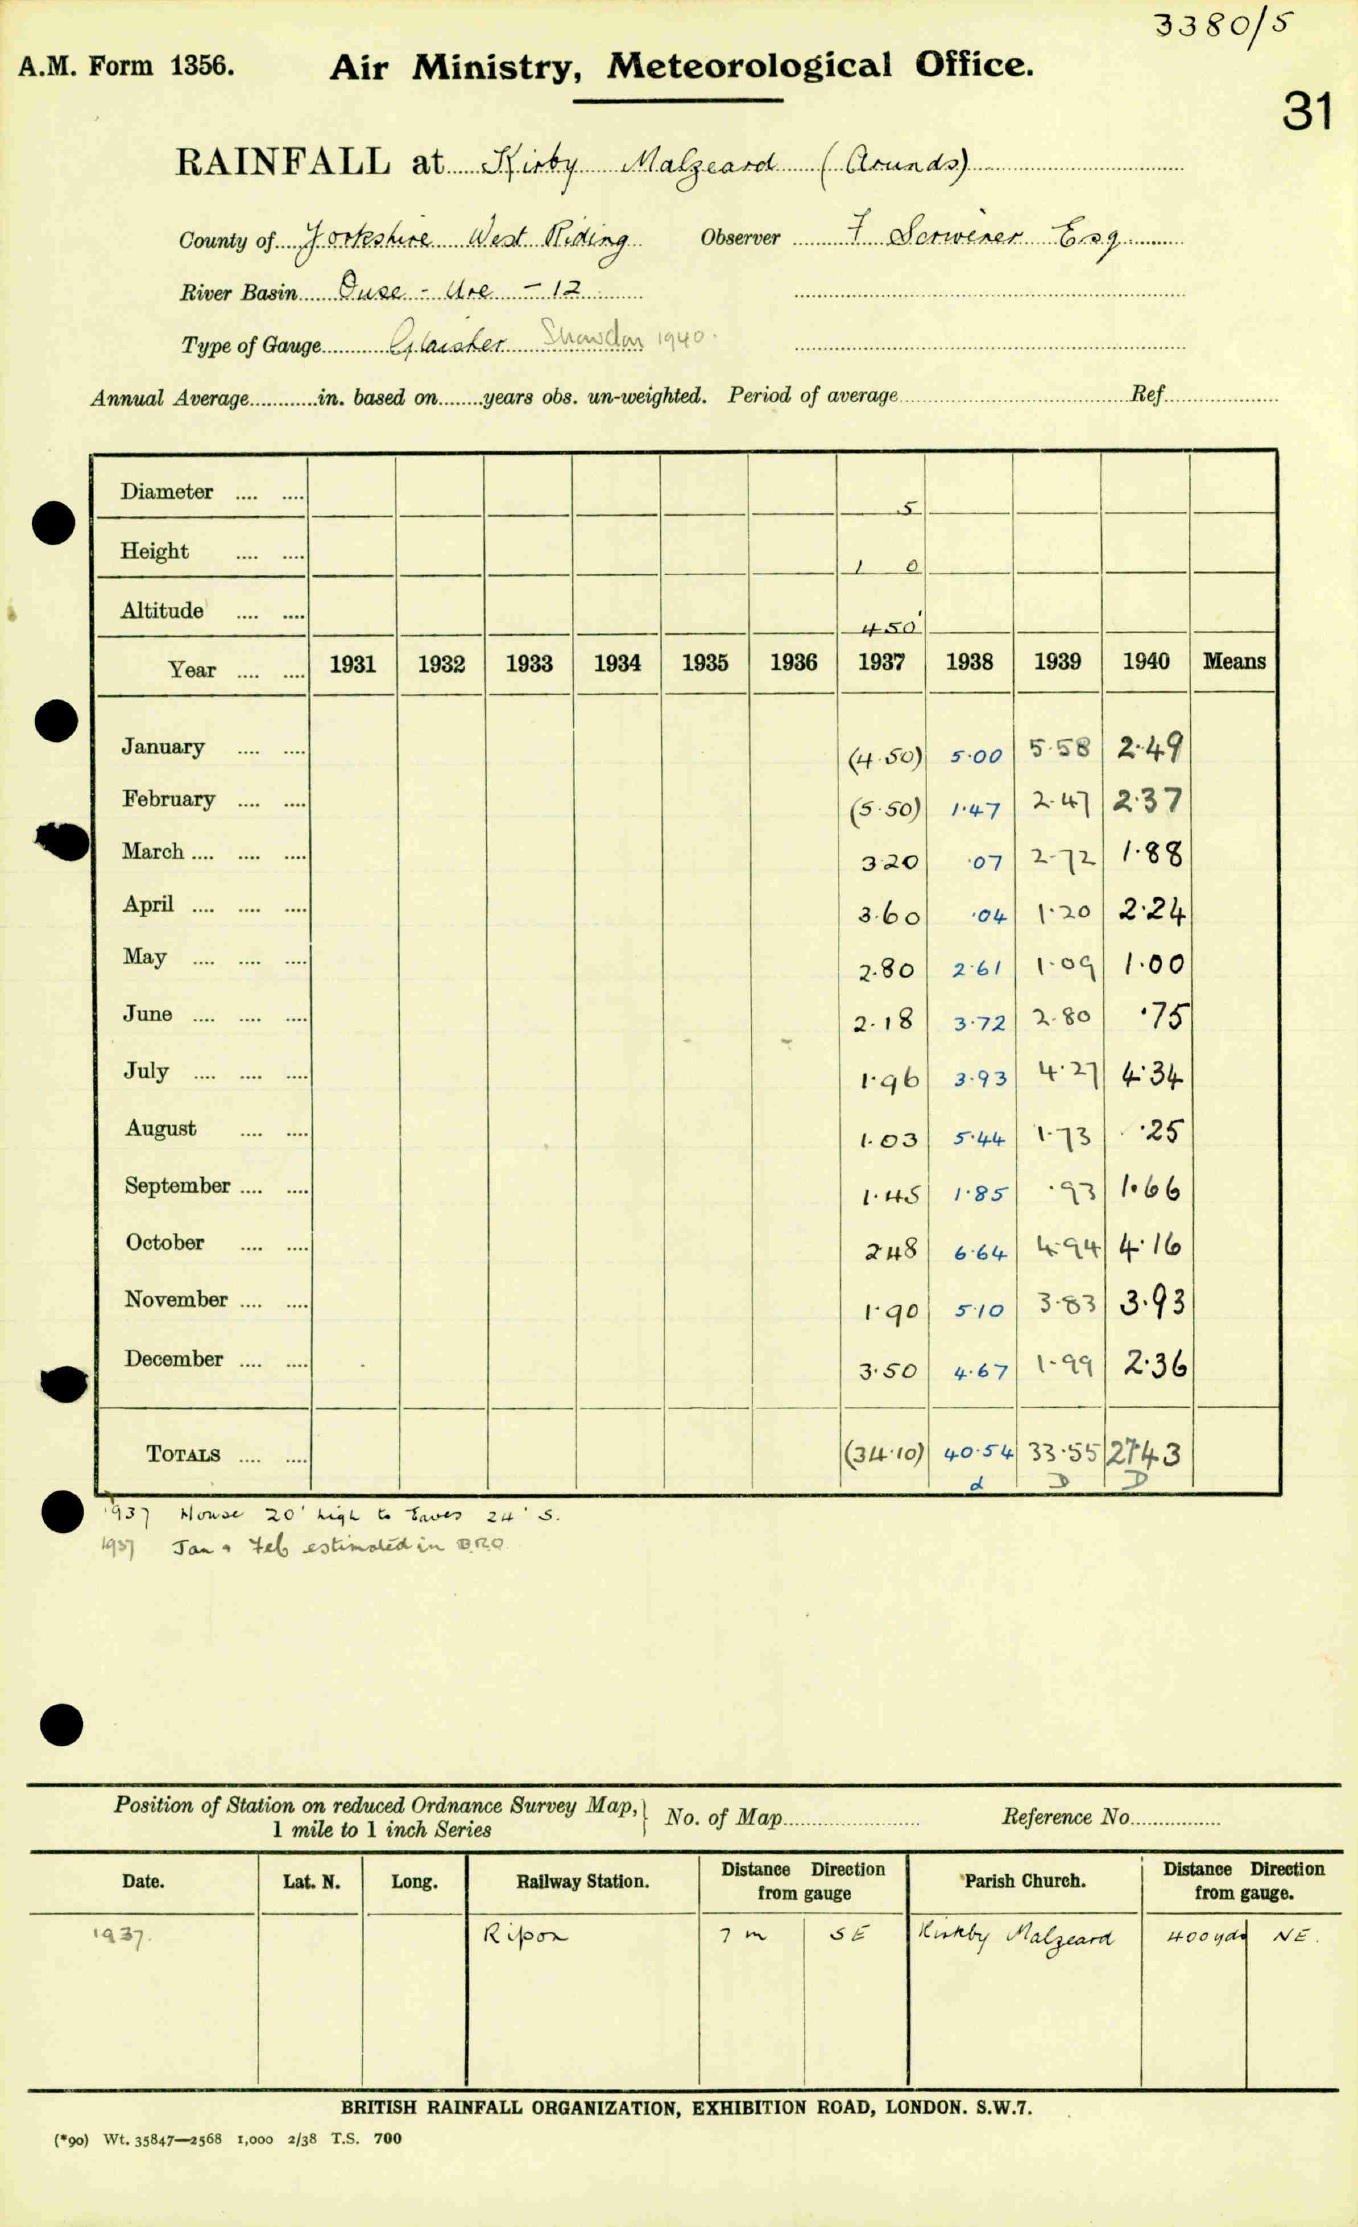 3380/5
A.M. Form 1356. Air Ministry, Meteorological Office.
31
RAINFALL at Kirby Malzeard (Arunds)
County of Yorkshire West Riding Observer F Scrivener Esq
River Basin Ouse - Ure - 12
Type of Gauge Glaisher Snowdon 1940.
Annual Average............in. based on........years obs. un-weighted. Period of average........ Ref........
Diameter .... .... 5
Height .... .... 1 0
Altitude .... .... 450'
Year .... .... 1931 1932 1933 1934 1935 1936 1937 1938 1939 1940 Means
January .... .... (4.50) 5.00 5.58 2.49
February .... .... (5.50) 1.47 2.47 2.37
March .... .... .... 3.20 .07 2.72 1.88
April .... .... .... 3.60 .04 1.20 2.24
May .... .... .... 2.80 2.61 1.09 1.00
June .... .... .... 2.18 3.72 2.80 .75
July .... .... .... 1.96 3.93 4.27 4.34
August .... .... 1.03 5.44 1.73 .25
September .... .... 1.45 1.85 .93 1.66
October .... .... 2.48 6.64 4.94 4.16
November .... .... 1.90 5.10 3.83 3.93
December .... .... 3.50 4.67 1.99 2.36
TOTALS .... .... (34.10) 40.54 33.55 27.43
d D D
1937 House 20' high to Eaves 24' S.
1937 Jan & Feb estimated in B.R.O
Position of Station on reduced Ordnance Survey Map, 1 mile to 1 inch Series } No. of Map........ Reference No........
Date. Lat. N. Long. Railway Station. Distance Direction from gauge Parish Church. Distance Direction from gauge.
1937. Ripon 7 m SE Kirkby Malzeard 400 yds NE.
BRITISH RAINFALL ORGANIZATION, EXHIBITION ROAD, LONDON. S.W.7.
(*90) Wt. 35847—2568 1,000 2/38 T.S. 700